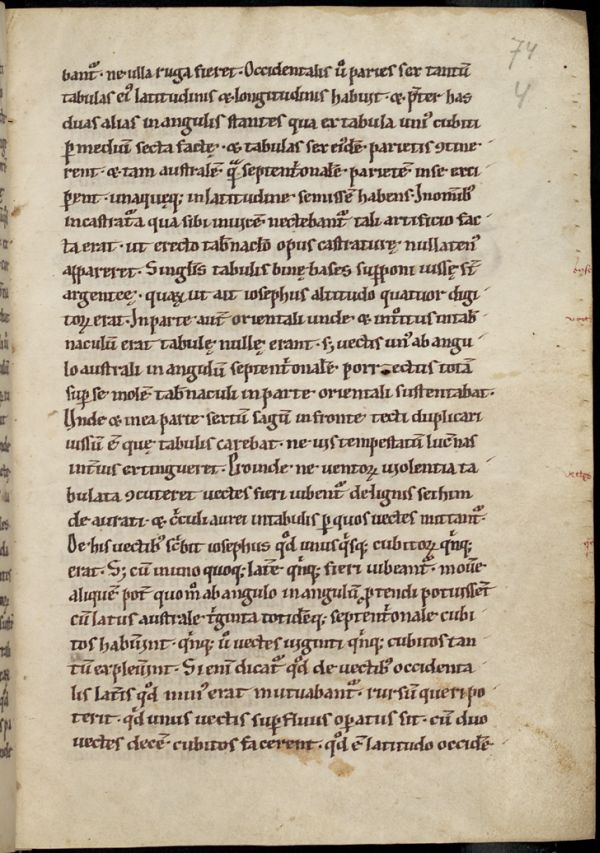 74
4
bant᷑ · ne ulla ruga fieret · Occidentalis u͛o paries sex tantū
tabulas ei᷒ latitudinis & longitudinis habuit · & p̄ter has
duas alias in angulis stantes qua ex tabula uni᷒ cubiti
ꝑ mediū secta factę · & tabulas sex eidē parietis ꝯtine
rent · & tam australē · q̄ septent͛onalē · parietē in se exci
ꝑent · unaquęq; in latitudine semissem habens · In omib᷒
incastrat᷑a qua sibi inuicē nectebant᷑ tali artificio fac
ta erat · ut erecto tab̄naclo opus castraturę nullaten᷒
appareret · Singlis tabulis binę bases supponi iussę sī
argenteę · quaꝝ ut ait iosephus altitudo quatuor digi
toꝝ erat · In parte aut̄ orientali unde & int͛oitus in tab̄
naculū erat tabulę nullę erant · s; uectis un᷒ ab angu
lo australi in angulū septent͛onalē porrectus totā
suꝑ se molē tab̄naculi in parte orientali sustentabat ·
Unde & in ea parte sextum sagū in fronte tecti duplicari
iussū ē · quę tabulis carebat · ne uis tempestatū luc̄nas
int͛ius extingueret · Proinde ne uentoꝝ uiolentia ta
bulata ꝯcuteret uectes fieri iubent᷑ de lignis sethim
de aurati · & c͛culi aurei in tabulis ꝑ quos uectes mittant᷑ ·
De his uectib᷒ sc͛bit iosephus qd̄ unus q͛sq; cubitoꝝ q͛nq;
erat · S; cū in uno quoq; lat͛e q͛nq; fieri iubeant᷑ · mouē
aliquē pot̄ quom̄ ab angulo in angulū ꝓtendi potuissent
cū latus australe t͛ginta totidēq; septent͛onale cubi
tos habuer̄nt · q͛nq; u͛o uectes uiginti q͛nq; cubitos tan
tū expleuer̄nt · Si enī dicat᷑ qd̄ de uectib᷒ occidenta
lis lat͛is qd̄ min᷒ erat mutuabant᷑ · rursū queri po
terit · qd̄ unus uectis suꝑfluus opatus sit · cū duo
uectes decē cubitos facerent · qd̄ ē latitudo occidē